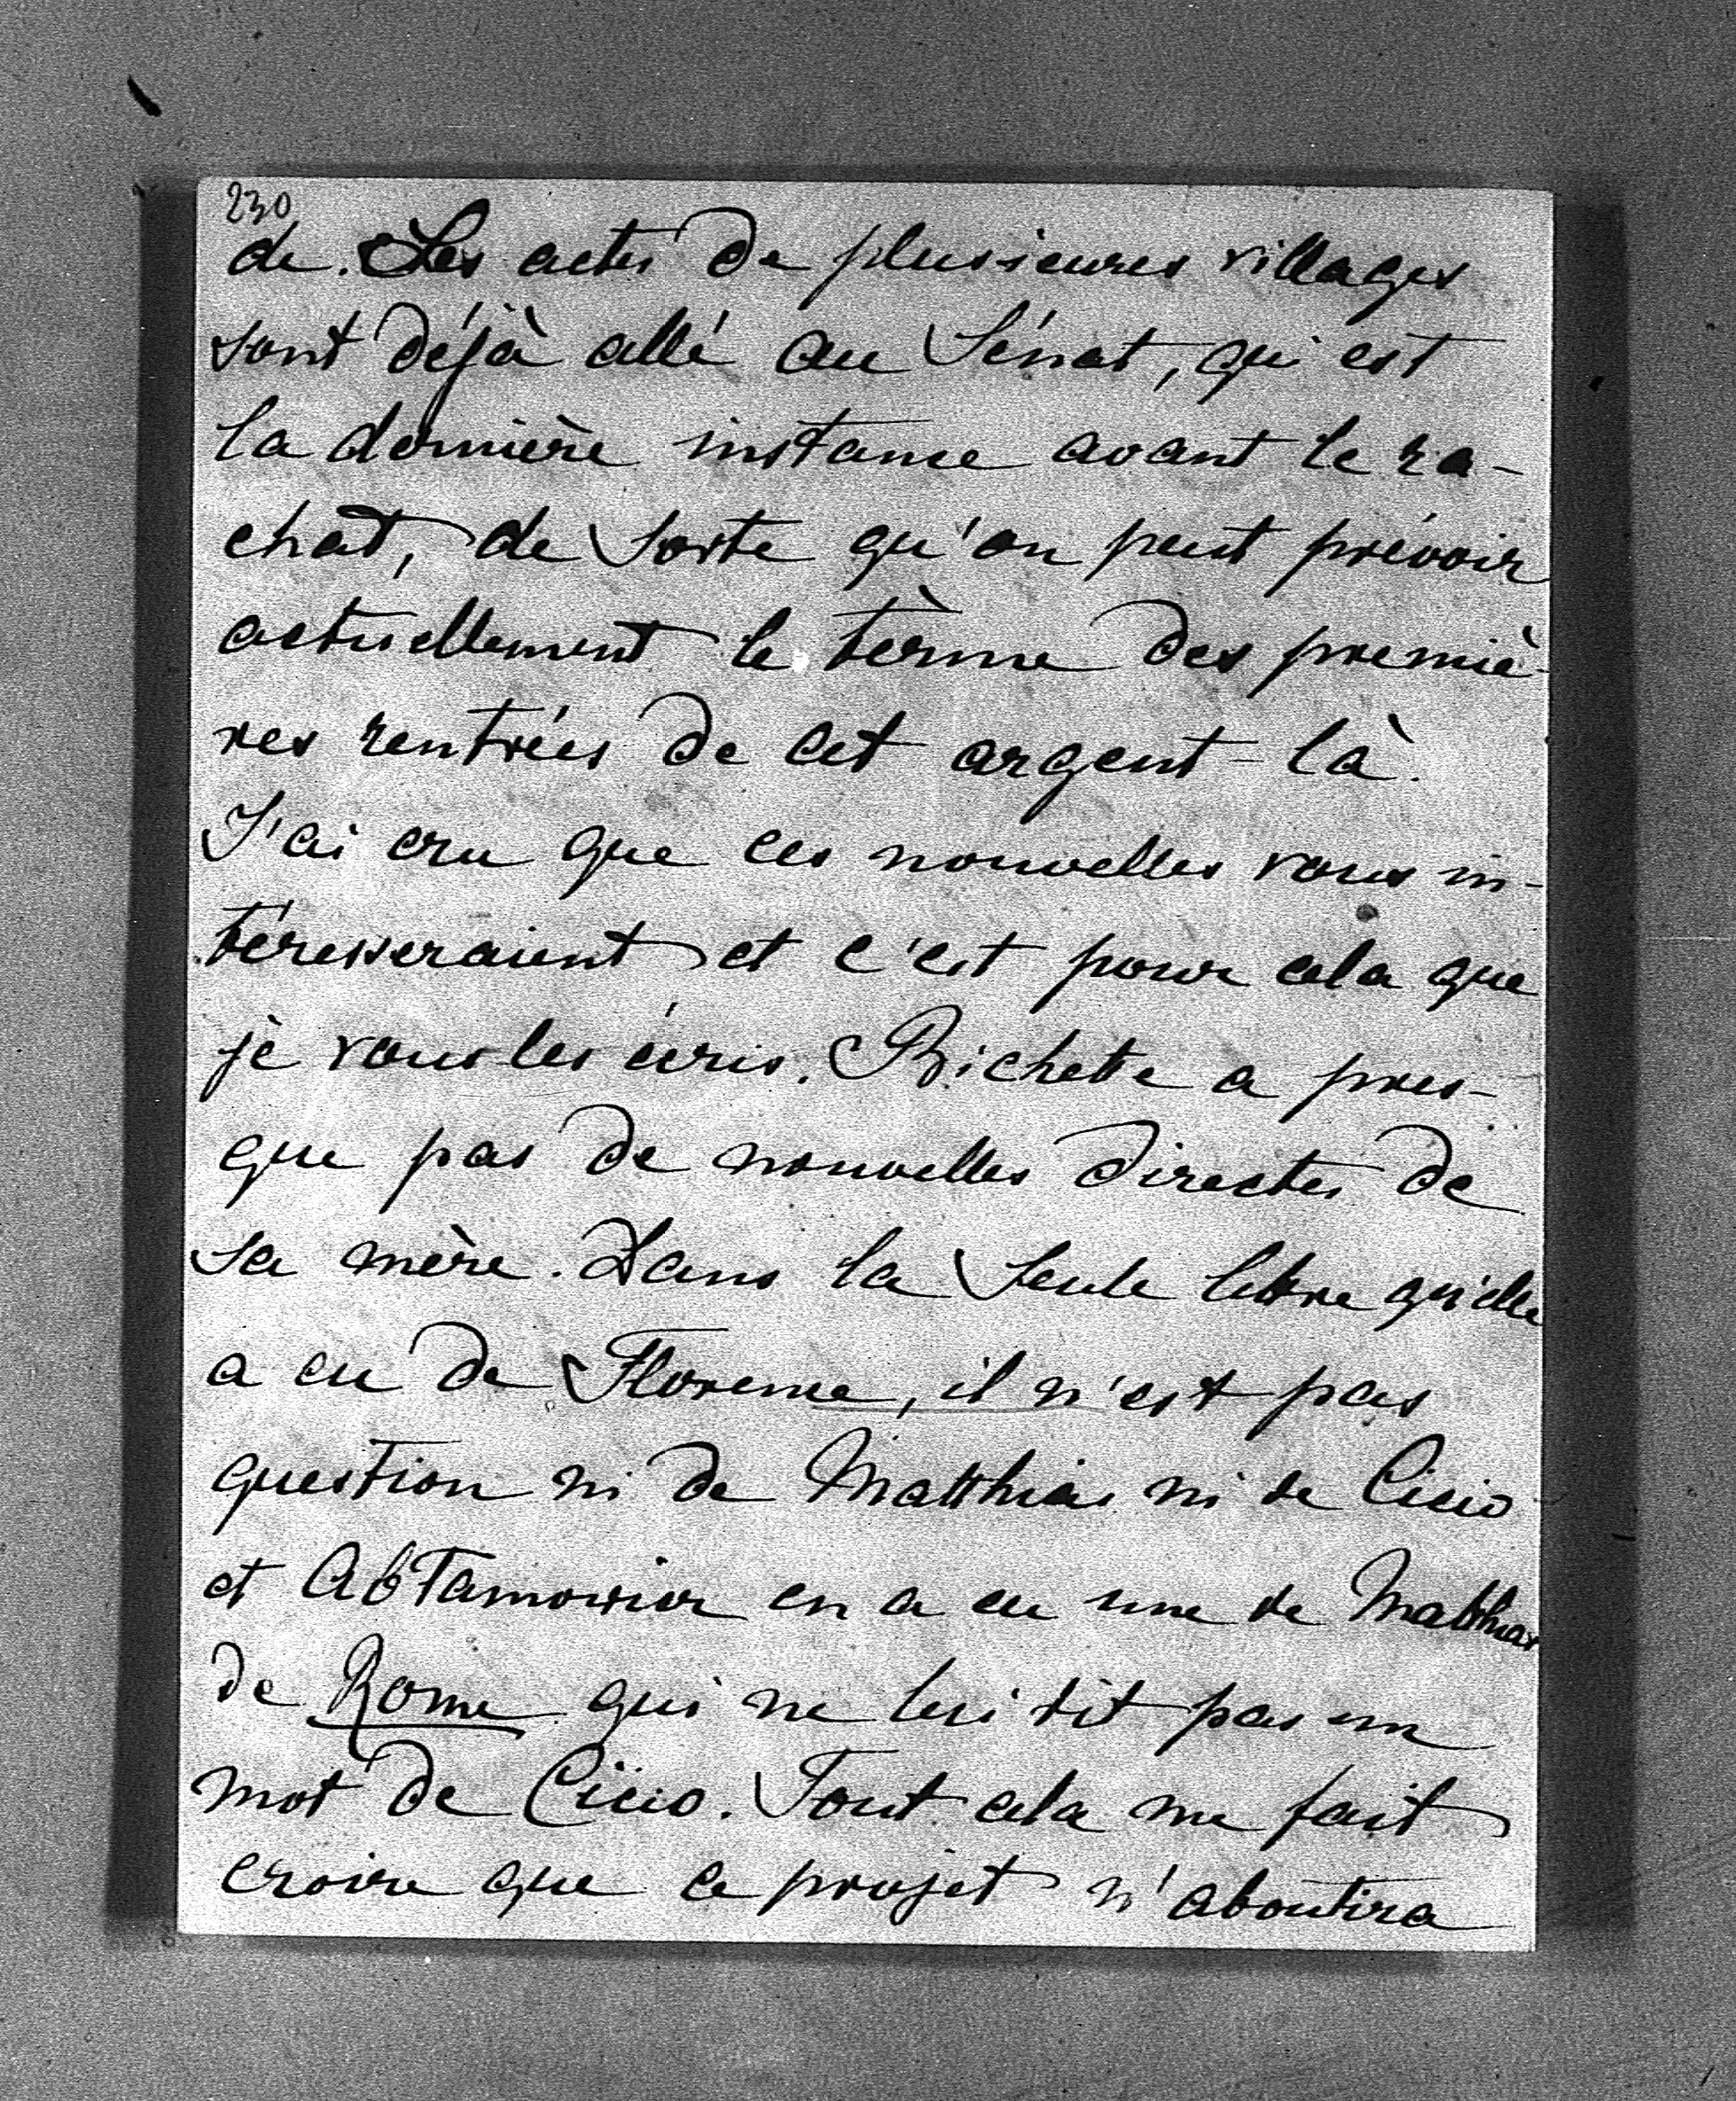 230
de. Les actes de plusieures villages
sont déjà allé au Sénat, qui est
la dernière instance avant le ra-
chat, de sorte qu'on peut prévoir
actuellement le tèrme des premiè-
res rentrées de cet argent-là.
J'ai cru que ces nouvelles vous in-
téresseraient et c'est pour cela que
je vous les écris. Bichette a pres-
que pas de nouvelles directes de
sa mère. Dans la seule lettre qu'elle
a eu de Florence, il n'est pas
question ni de Matthias ni de Ciccio
et en a eu une de Matthias
de Rome qui ne lui dit pas un
mot de Ciccio. Tout cela me fait
croire que ce projet n'aboutira